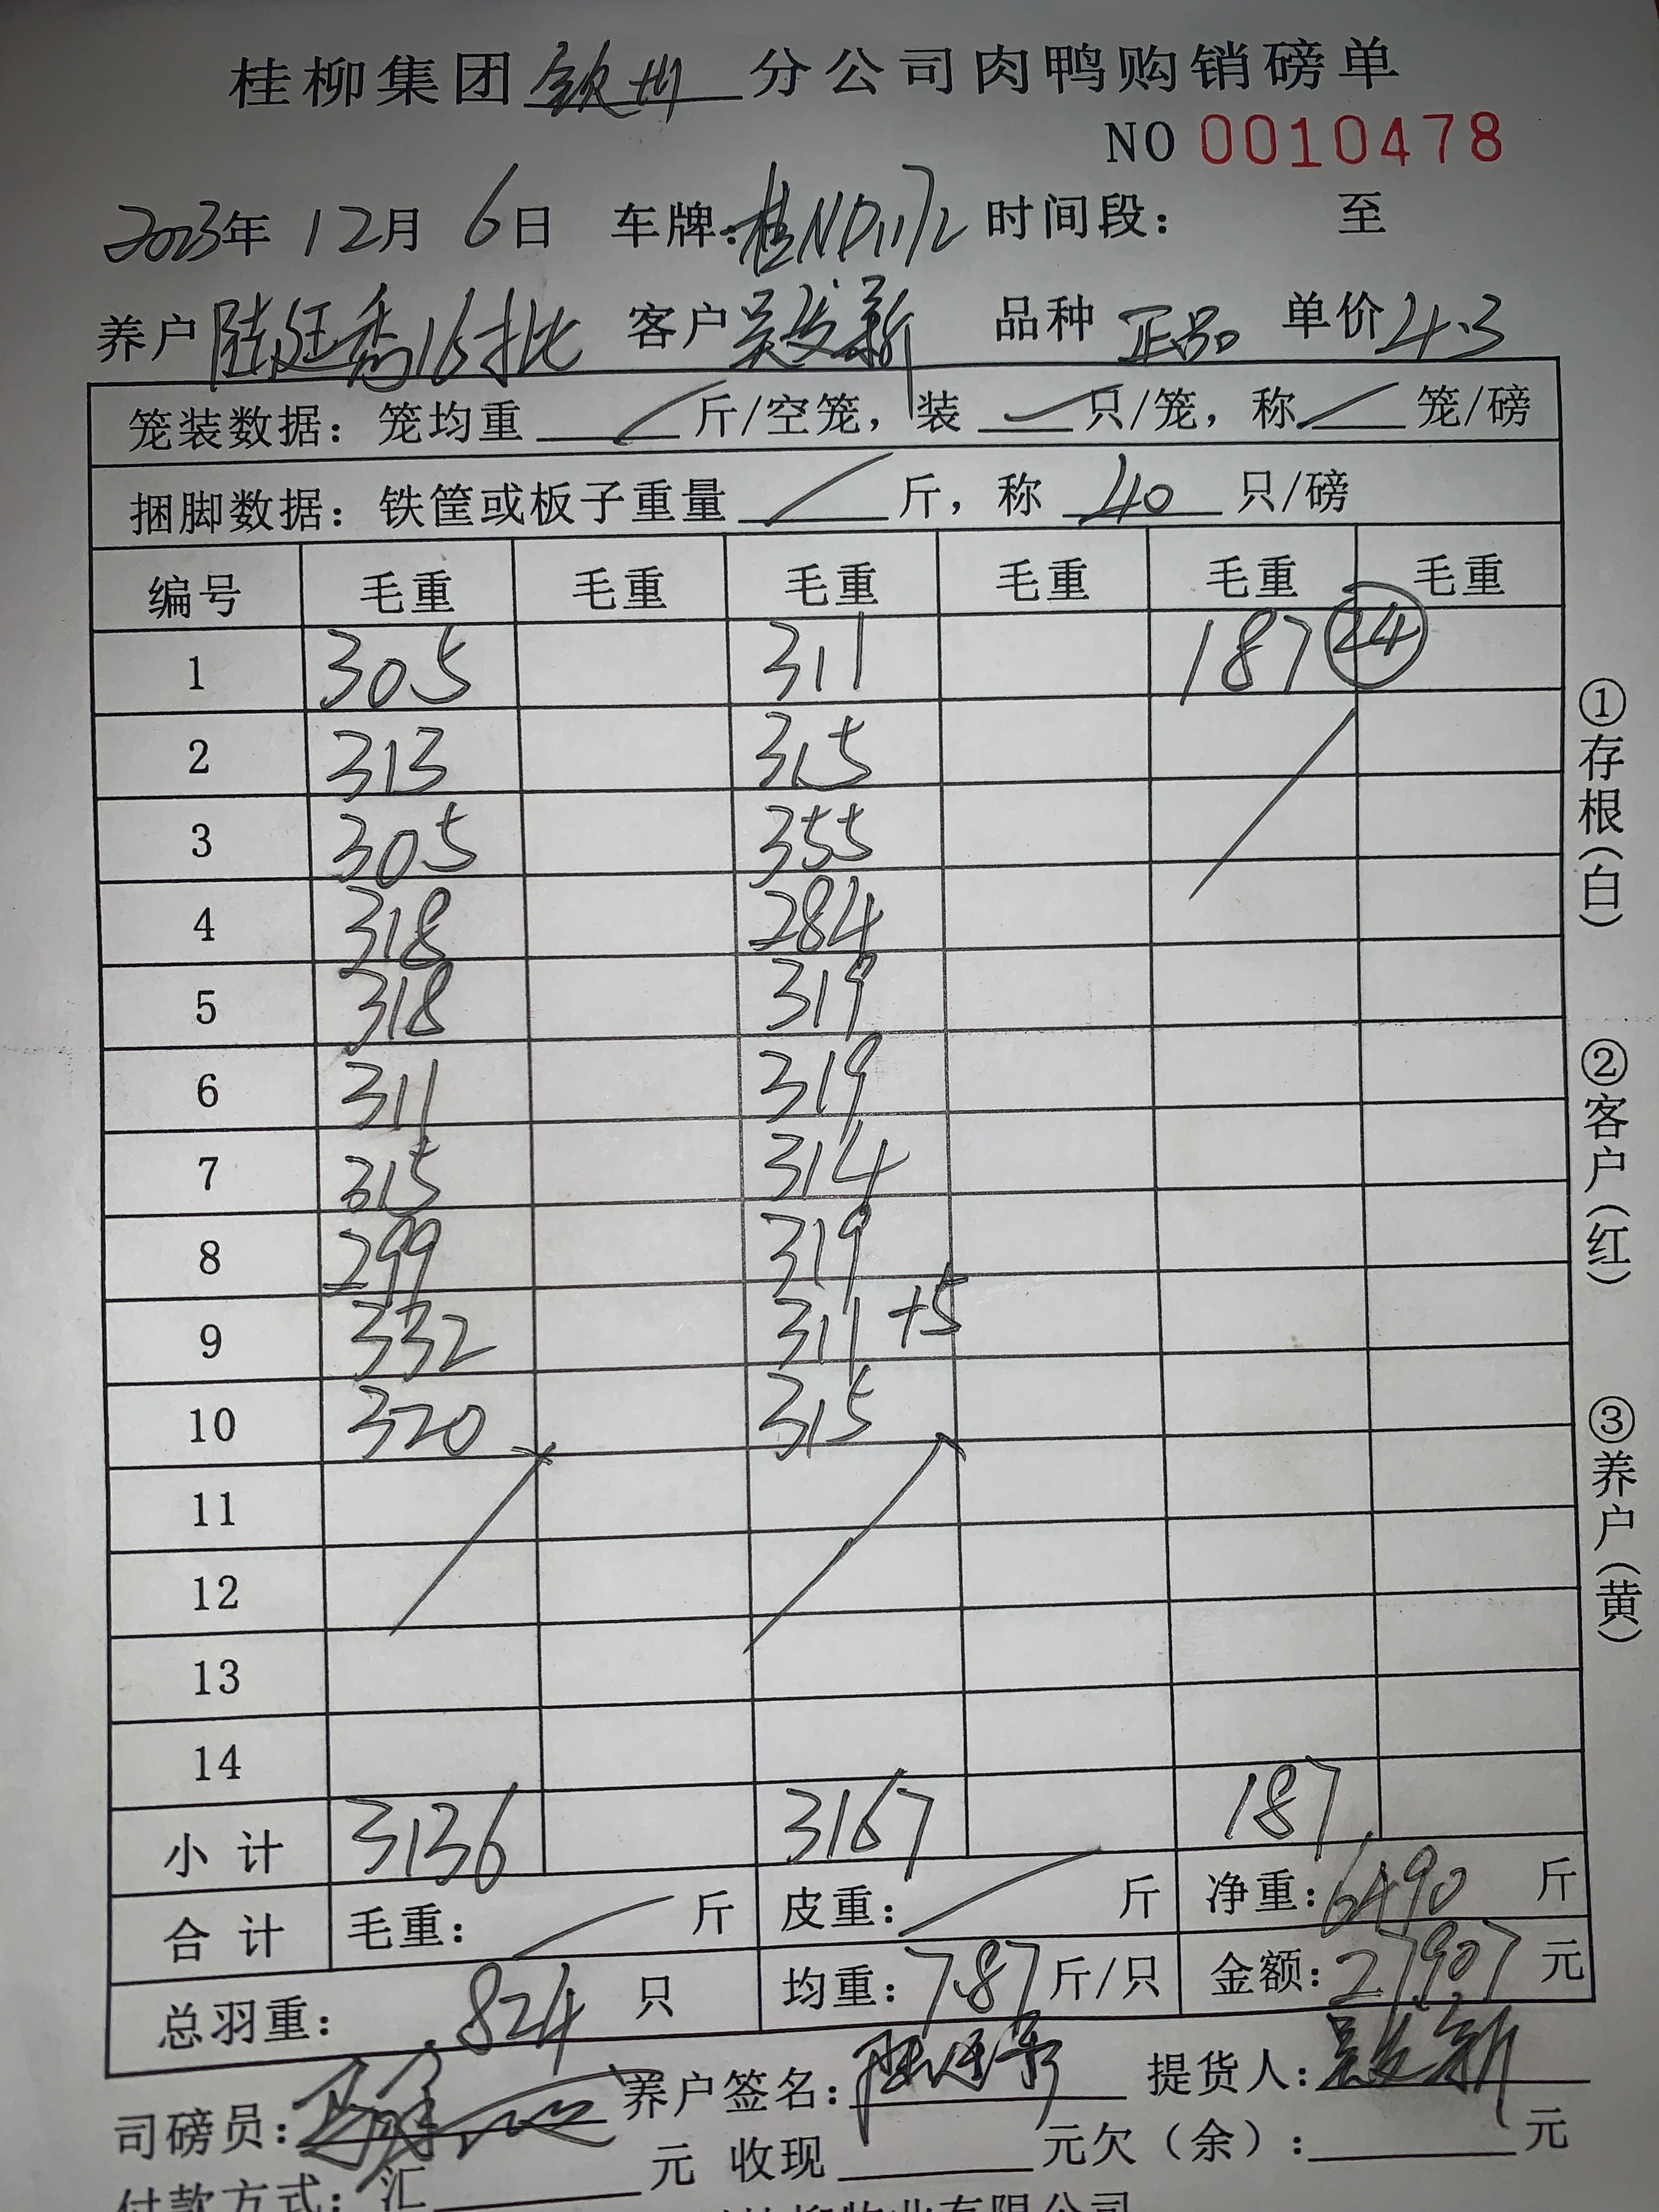 桂柳集团 钦州 分公司肉鸭购销磅单
NO 0010478
2023年 12月 6日 车牌:桂ND1172 时间段: 至
养户 陆廷秀16批 客户 吴发新 品种 正品 单价 4.3
笼装数据: 笼均重 斤/空笼, 装 只/笼, 称 笼/磅
捆脚数据: 铁筐或板子重量 斤, 称 40 只/磅
编号 毛重 毛重 毛重 毛重 毛重 毛重
1 305 311 187 24
2 313 315
3 305 355
4 318 284
5 318 319
6 311 319
7 315 314
8 299 319
9 332 311 +5
10 320 315
11
12
13
14
小计 3136 3167 187
合计 毛重: 斤 皮重: 斤 净重: 6490 斤
总羽重: 824 只 均重: 7.87 斤/只 金额: 27907 元
司磅员: 养户签名: 提货人: 吴发新
付款方式: 汇 元 收现 元欠(余): 元
①存根(白)
②客户(红)
③养户(黄)